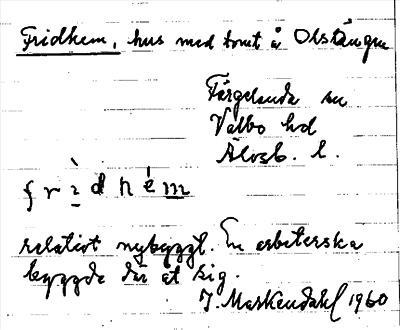 Fridhem, hus med tomt å Olstången
Färgelanda sn
Valbo hd
Älvsb. l.
frìdhém
relativt nybyggt. En arbeterska
byggde där åt sig.
J. Markendahl 1960